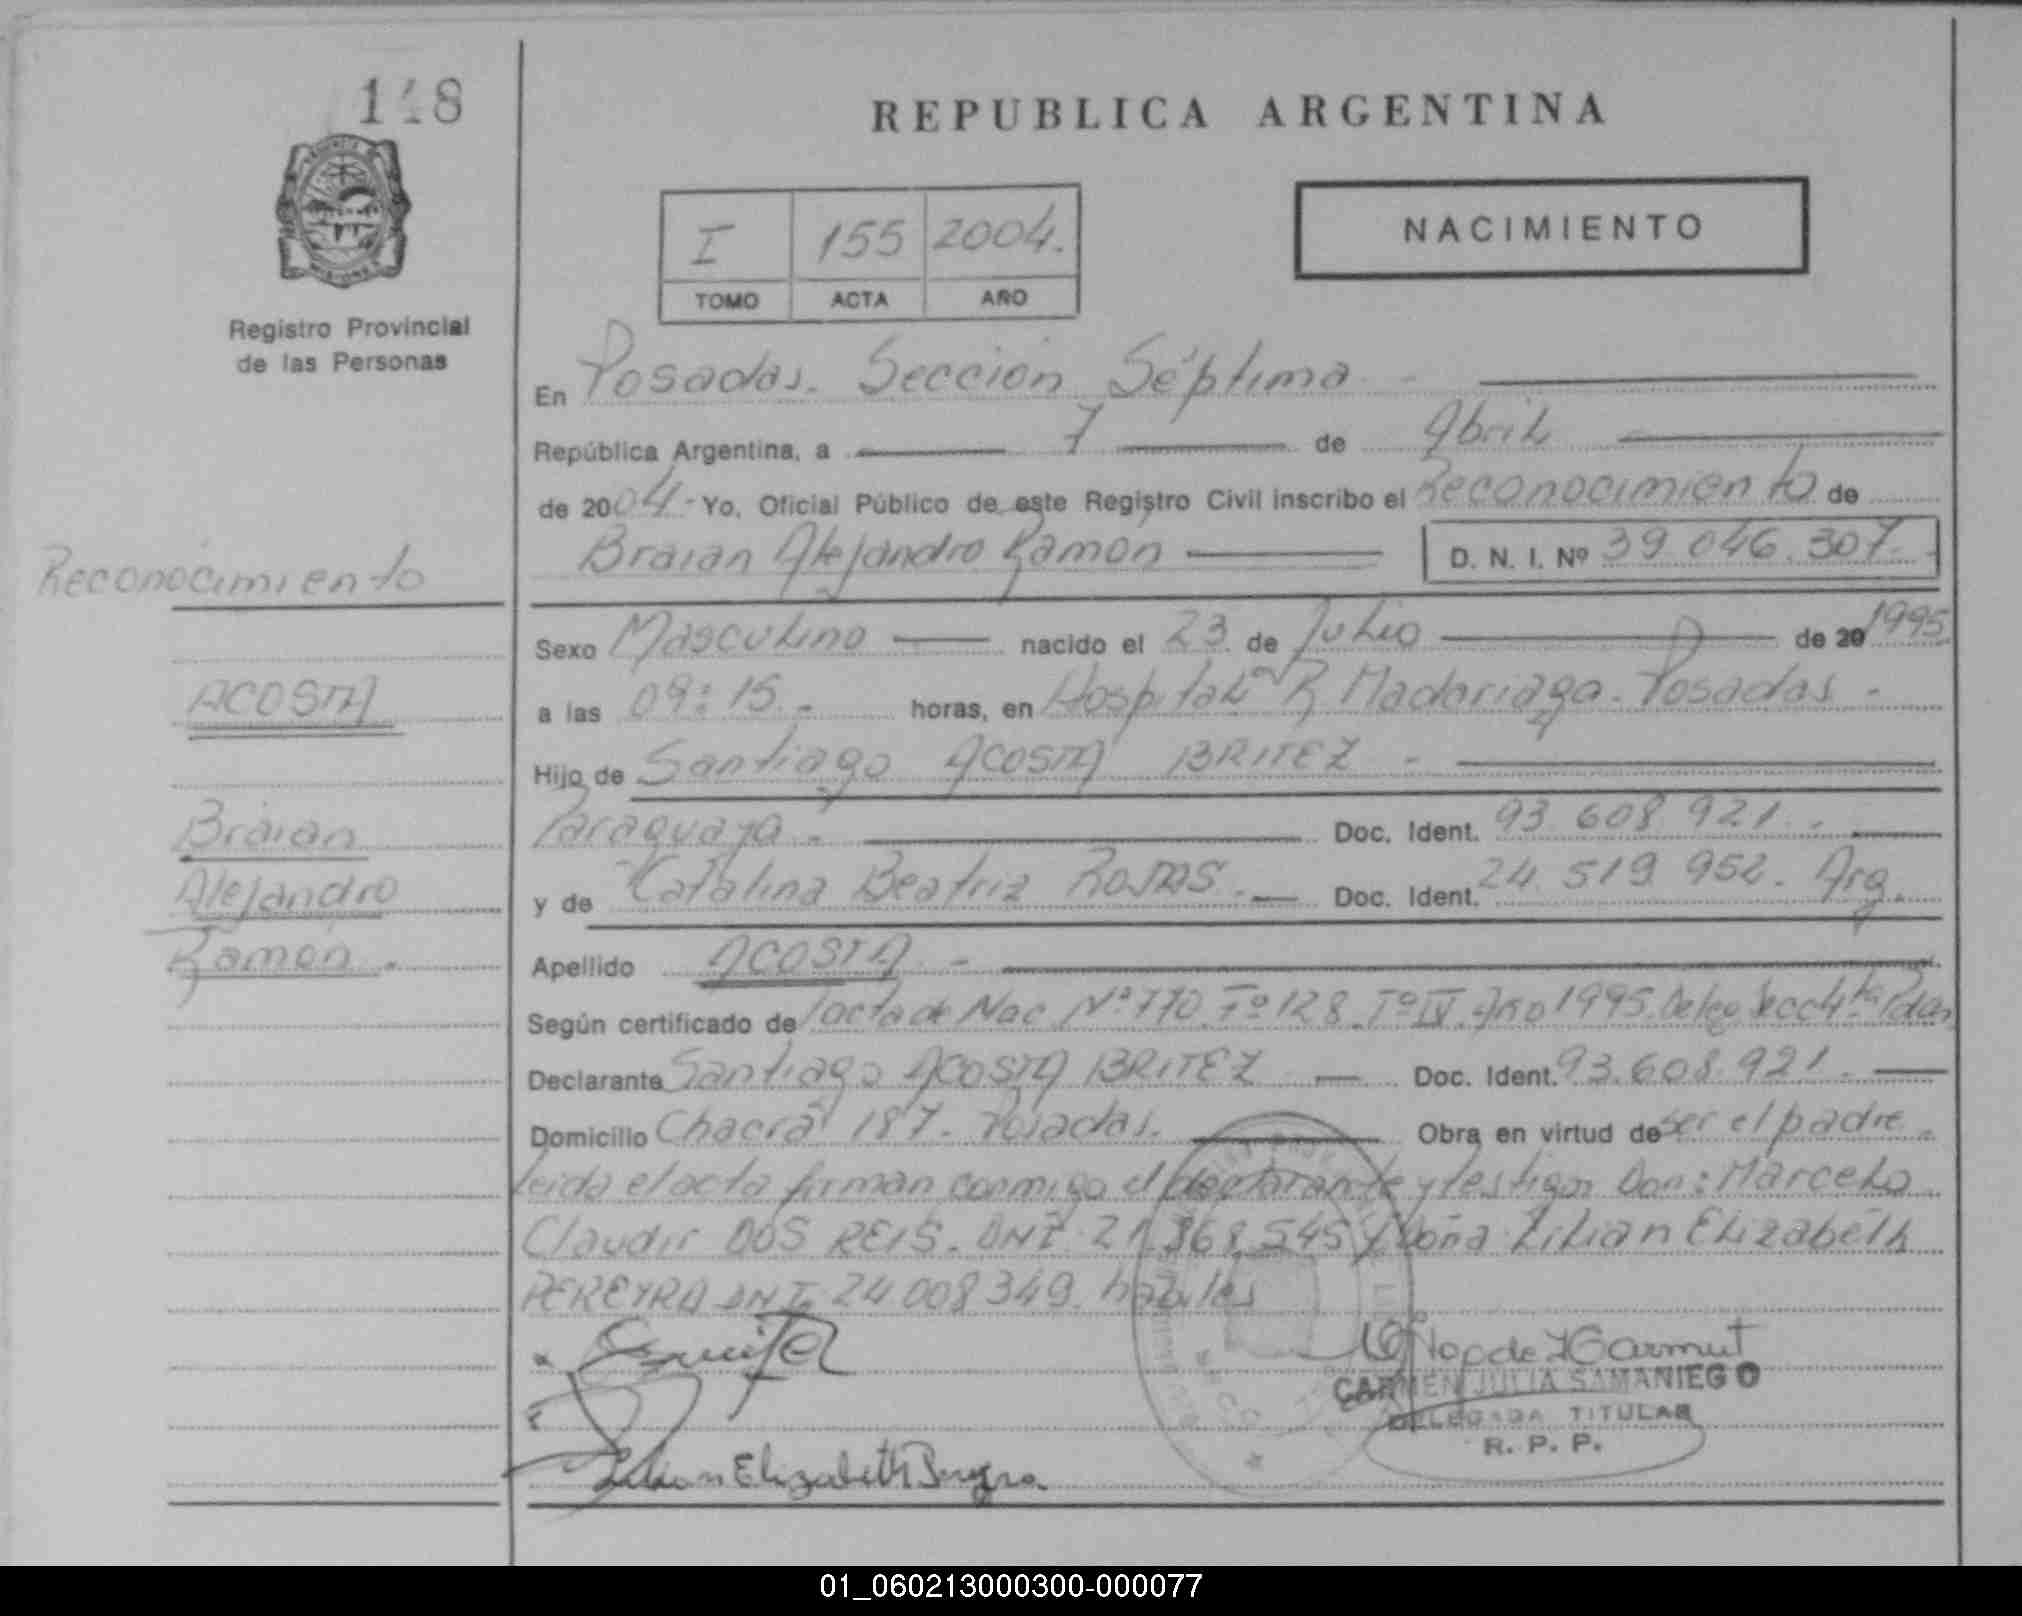 118
REPUBLICA ARGENTINA
I 155 2004.
TOMO ACTA AÑO
NACIMIENTO
Registro Provincial
de las Personas
En Posadas. Sección Séptima
República Argentina, a 7 de Abril
de 2004 - Yo, Oficial Público de este Registro Civil inscribo el Reconocimiento de
Braian Alejandro Ramon D. N. I. Nº 39.046.307.
Reconocimiento
Sexo Masculino nacido el 23 de Julio de 20 1995
ACOSTA
a las 09:15.- horas, en Hospital R. Madariaga. Posadas.
Hijo de Santiago ACOSTA BRITEZ -
Braian
Paraguaya. Doc. Ident. 93.608.921.
Alejandro
y de Catalina Beatriz ROJAS. Doc. Ident. 24.519.952. Arg.
Ramon.
Apellido ACOSTA -
Según certificado de acta de Nac Nº 770 Fº 128 Tº IV Año 1995. Deleg Secc 4ta Pdas
Declarante Santiago ACOSTA BRITEZ Doc. Ident. 93.608.921.
Domicilio Chacra 187. Posadas. Obra en virtud de ser el padre.
Leida el acta firman conmigo el declarante y testigos Don: Marcelo
Claudir DOS REIS. DNI. 21.368.545 y Doña Lilian Elizabeth
PEREYRA DNI. 24.008.349. habiles
Lilian Elizabeth Pereyra
CARMEN JULIA SAMANIEGO
DELEGADA TITULAR
R. P. P.
01_060213000300-000077